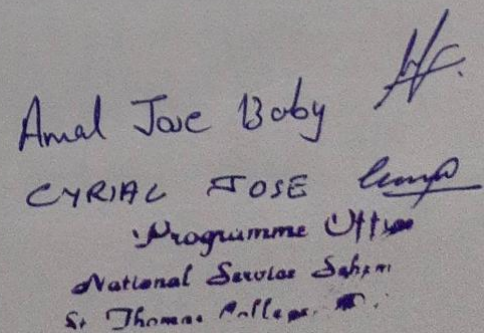 Amal Jose Boby
CYRIAC JOSE
Programme
National Service
St Thomas College